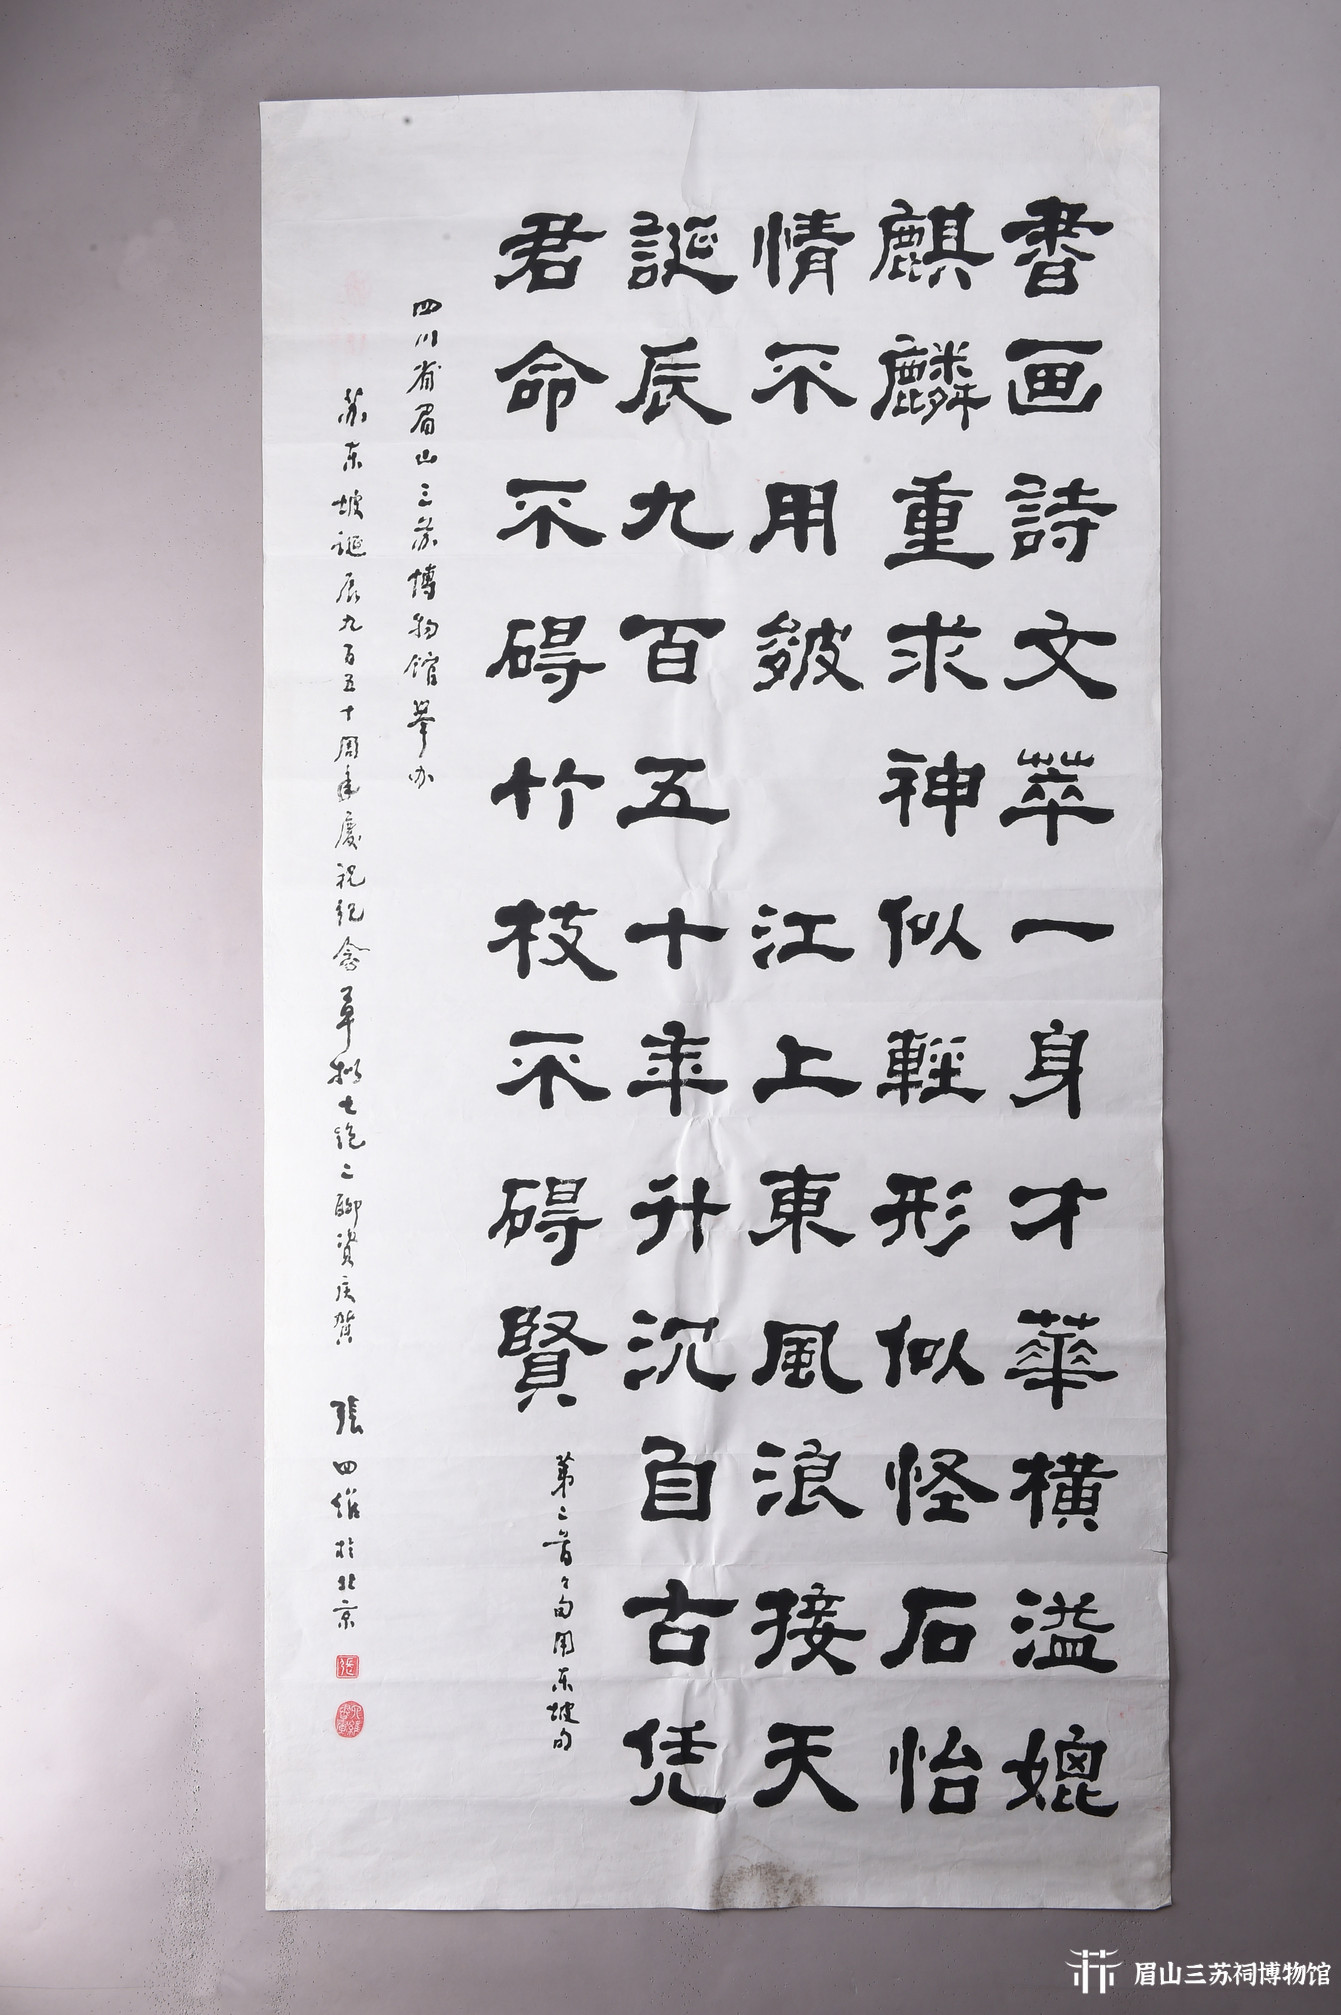 書画詩文萃一身才華橫溢媲
麒麟重求神似輕形似怪石怡
情不用皴 江上東風浪接天
誕辰九百五十年升沉自古凭
君命不碍竹枝不碍賢
第二首首句用东坡句
四川省眉山三苏博物馆举办
苏东坡誕辰九百五十周年慶祝纪念草拟七绝二首聊资庆贺
張四维於北京
眉山三苏祠博物馆